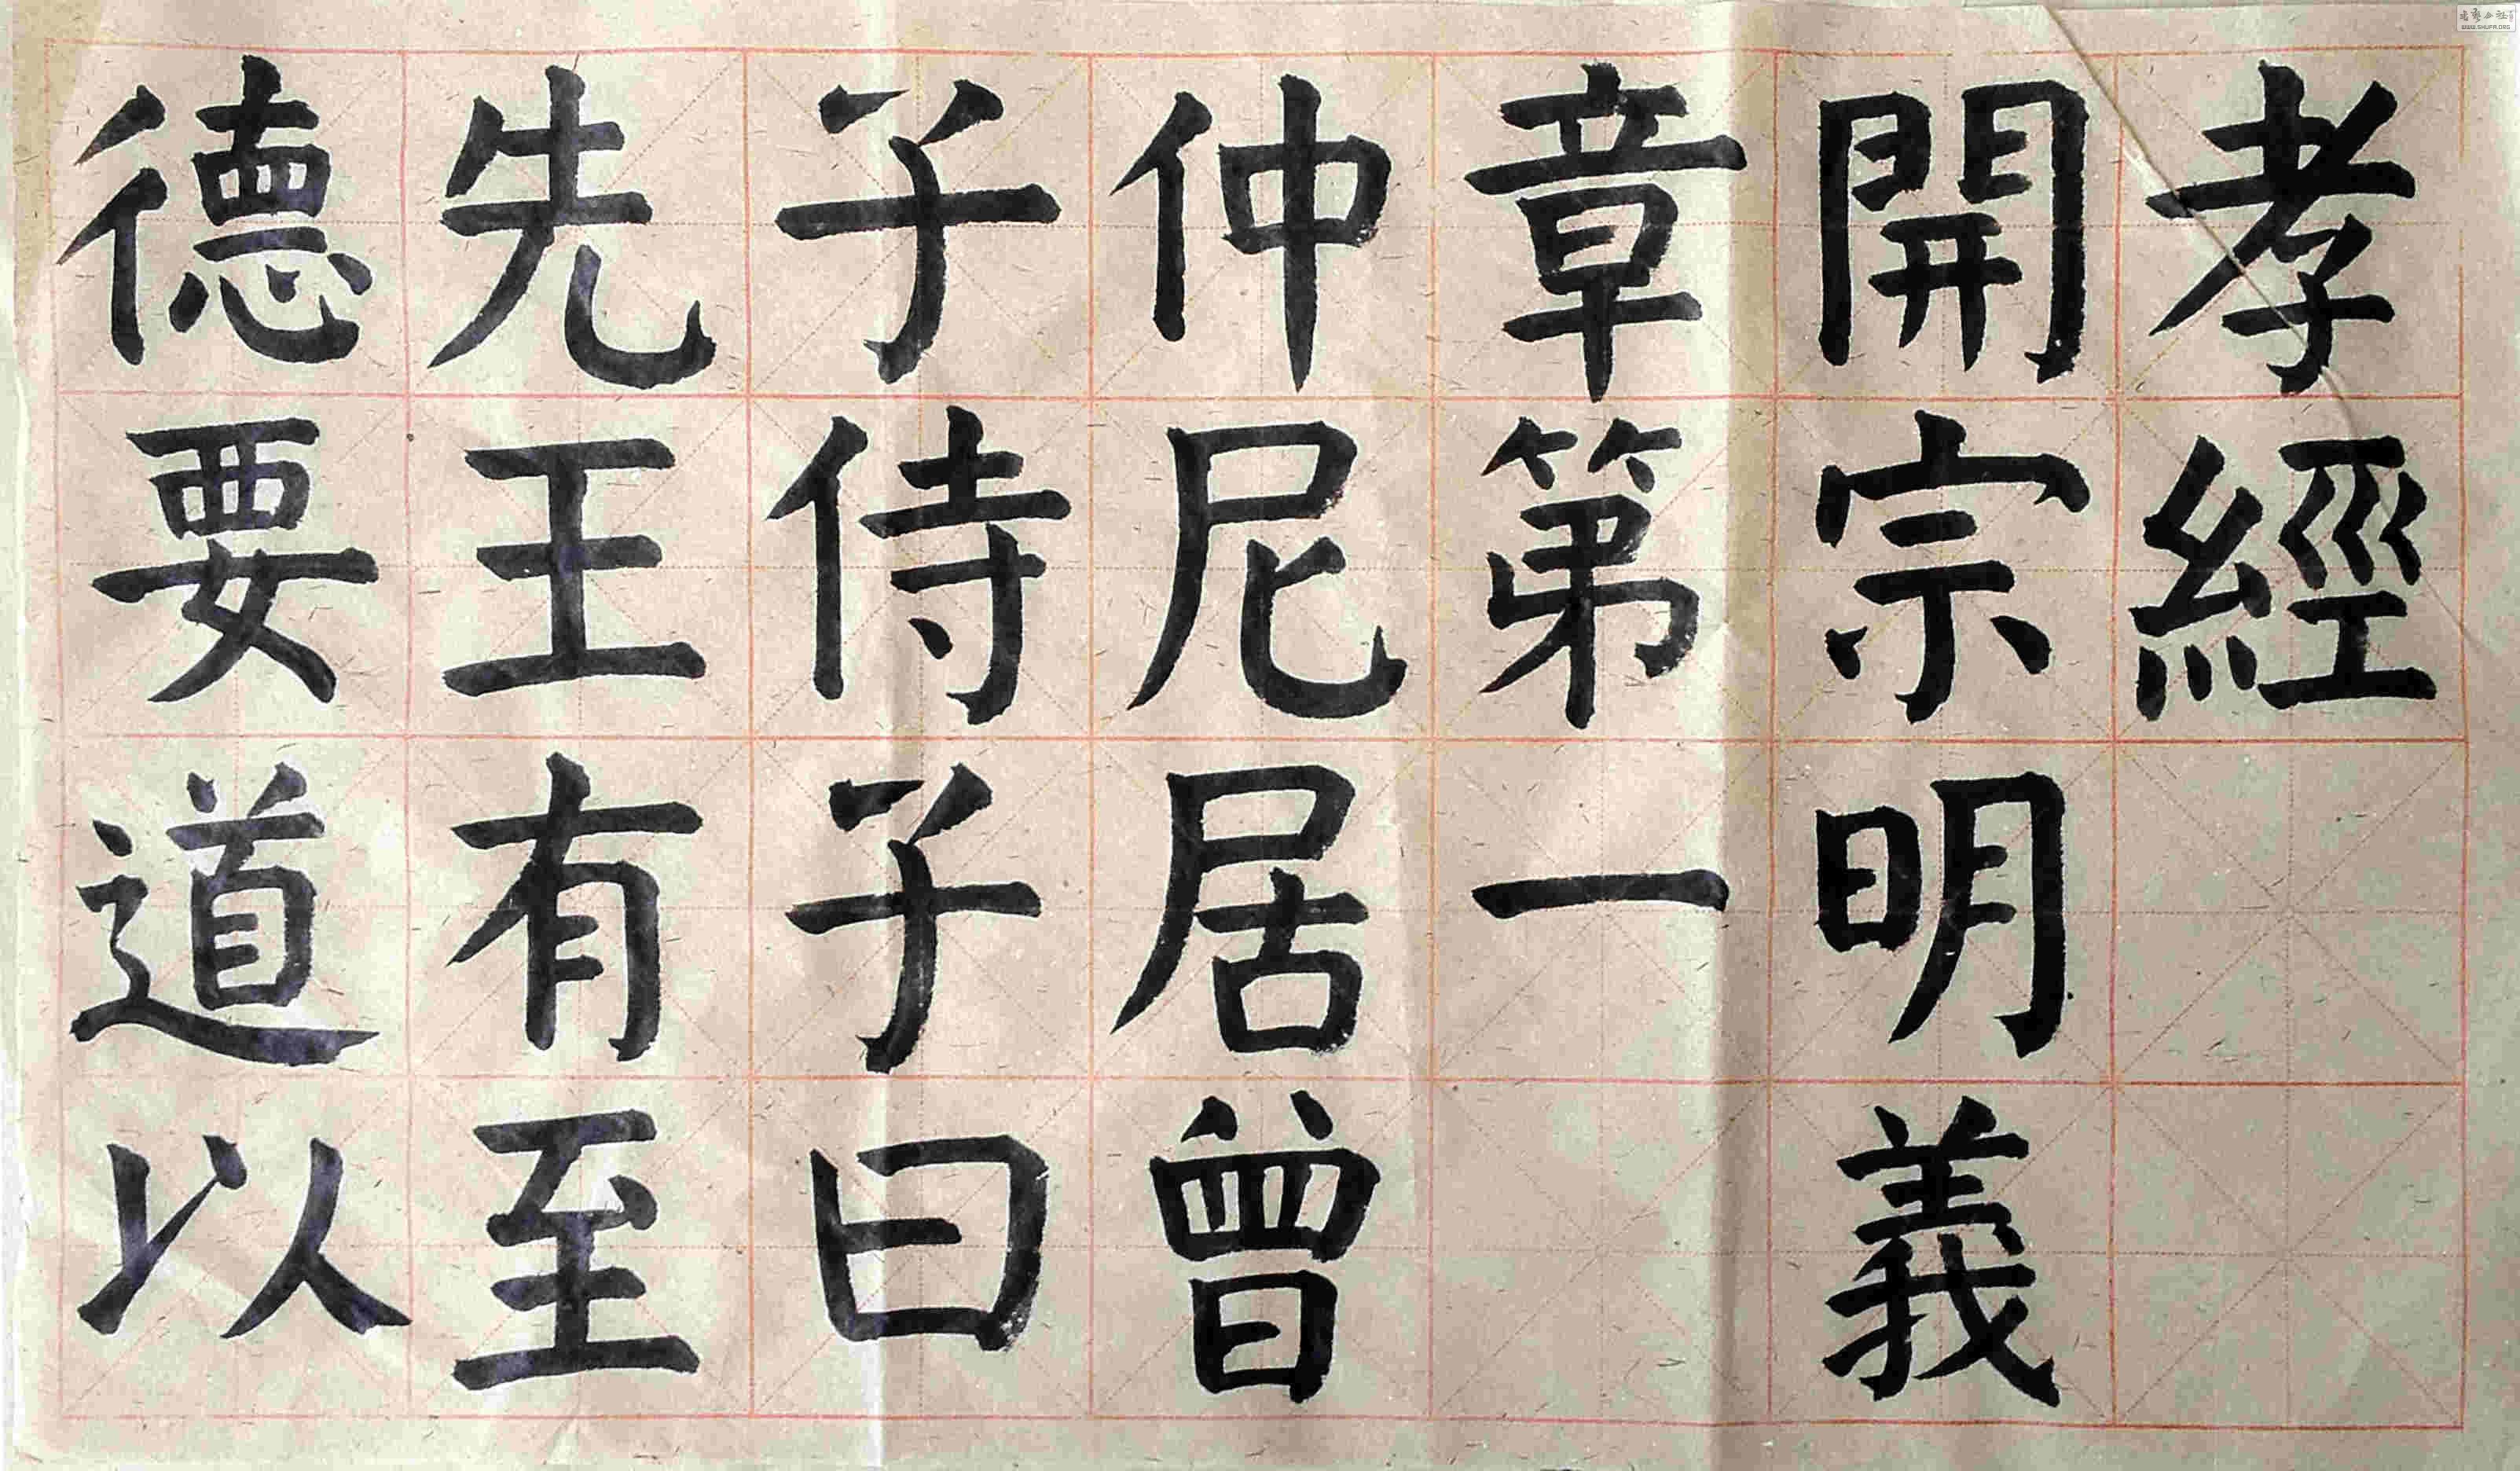 孝經
開宗明義
章第一
仲尼居曾
子侍子曰
先王有至
德要道以
WWW.SHUFA.ORG